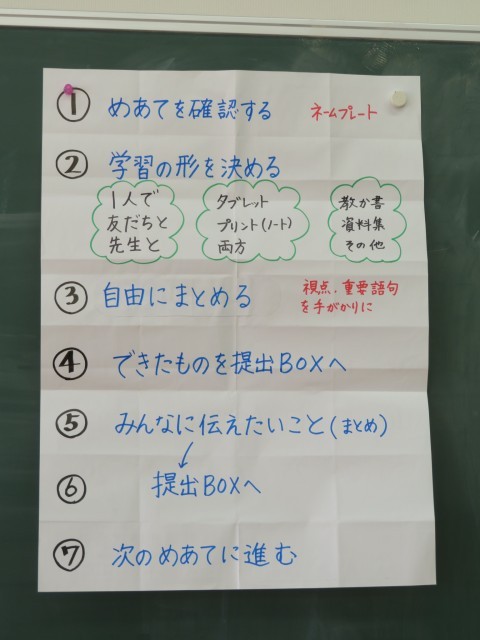 ① めあてを確認する ネームプレート
② 学習の形を決める
1人で
友だちと
先生と
タブレット
プリント(ノート)
両方
教か書
資料集
その他
③ 自由にまとめる
視点、重要語句
を手がかりに
④ できたものを提出BOXへ
⑤ みんなに伝えたいこと(まとめ)
↓
⑥ 提出BOXへ
⑦ 次のめあてに進む